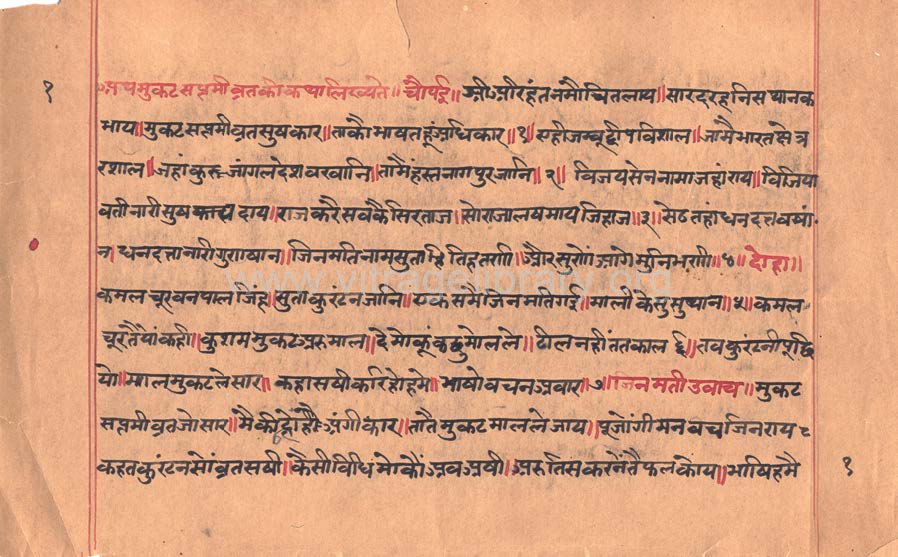 १ अथ मुकट सप्तमी व्रत की कथा लिख्यते॥ चौपई॥ श्री श्री रहंत नमौ चित लाय॥ सारद रहनि सथानक
भाय॥ मुकट सप्तमी व्रत सुषकार॥ ताकौ भावत हूं अधिकार॥ १॥ सही जम्बूद्वीप विशाल॥ जामै भारत क्षेत्र
रशाल॥ जहां कुरुजांगल देश वरवानि॥ तामै हस्तनागपुर जानि॥ २॥ विजयसेन नामा जहां राय॥ विजिया
वती नारी सुष दाय॥ राज करै सवकै सिरताज॥ सो राजा लय माय जिहाज॥ ३॥ सेठ तहां धनदत्त वषां
न॥ धनदत्ता नारी गुणषान॥ जिनमति नाम सुता तिह तणी॥ और सुणों आगे मुनि भणी॥ ४॥ दोहा॥
कमल चूर वनपाल जिंह॥ सुता कुरंटन जानि॥ यक समै जिनमति गई॥ माली के सुसुथान॥ ५॥ कमल
चूर तैं यां कही॥ कुशम मुकट अरु माल॥ दे मोकूं कछु मोल ले॥ ढील नहीं ततकाल॥ ६॥ तव कुरंटनी पूछि
यो॥ माल मुकट ले सार॥ कहा सषी करि हो हमे॥ भाषो वचन अवार॥ ७॥ जिनमती उवाच॥ मुकट
सप्तमी व्रत जो सार॥ मै कीन्हो है अंगीकार॥ तातै मुकट माल ले जाय॥ पूजोंगी मन वच जिनराय ८
कहत कुंरटन सों व्रत सषी॥ कैसी विधि मोकौं अव अषी॥ अरु तिस करनें तै फल कोय॥ भाषि हमै १
www.vitragelibrary.org